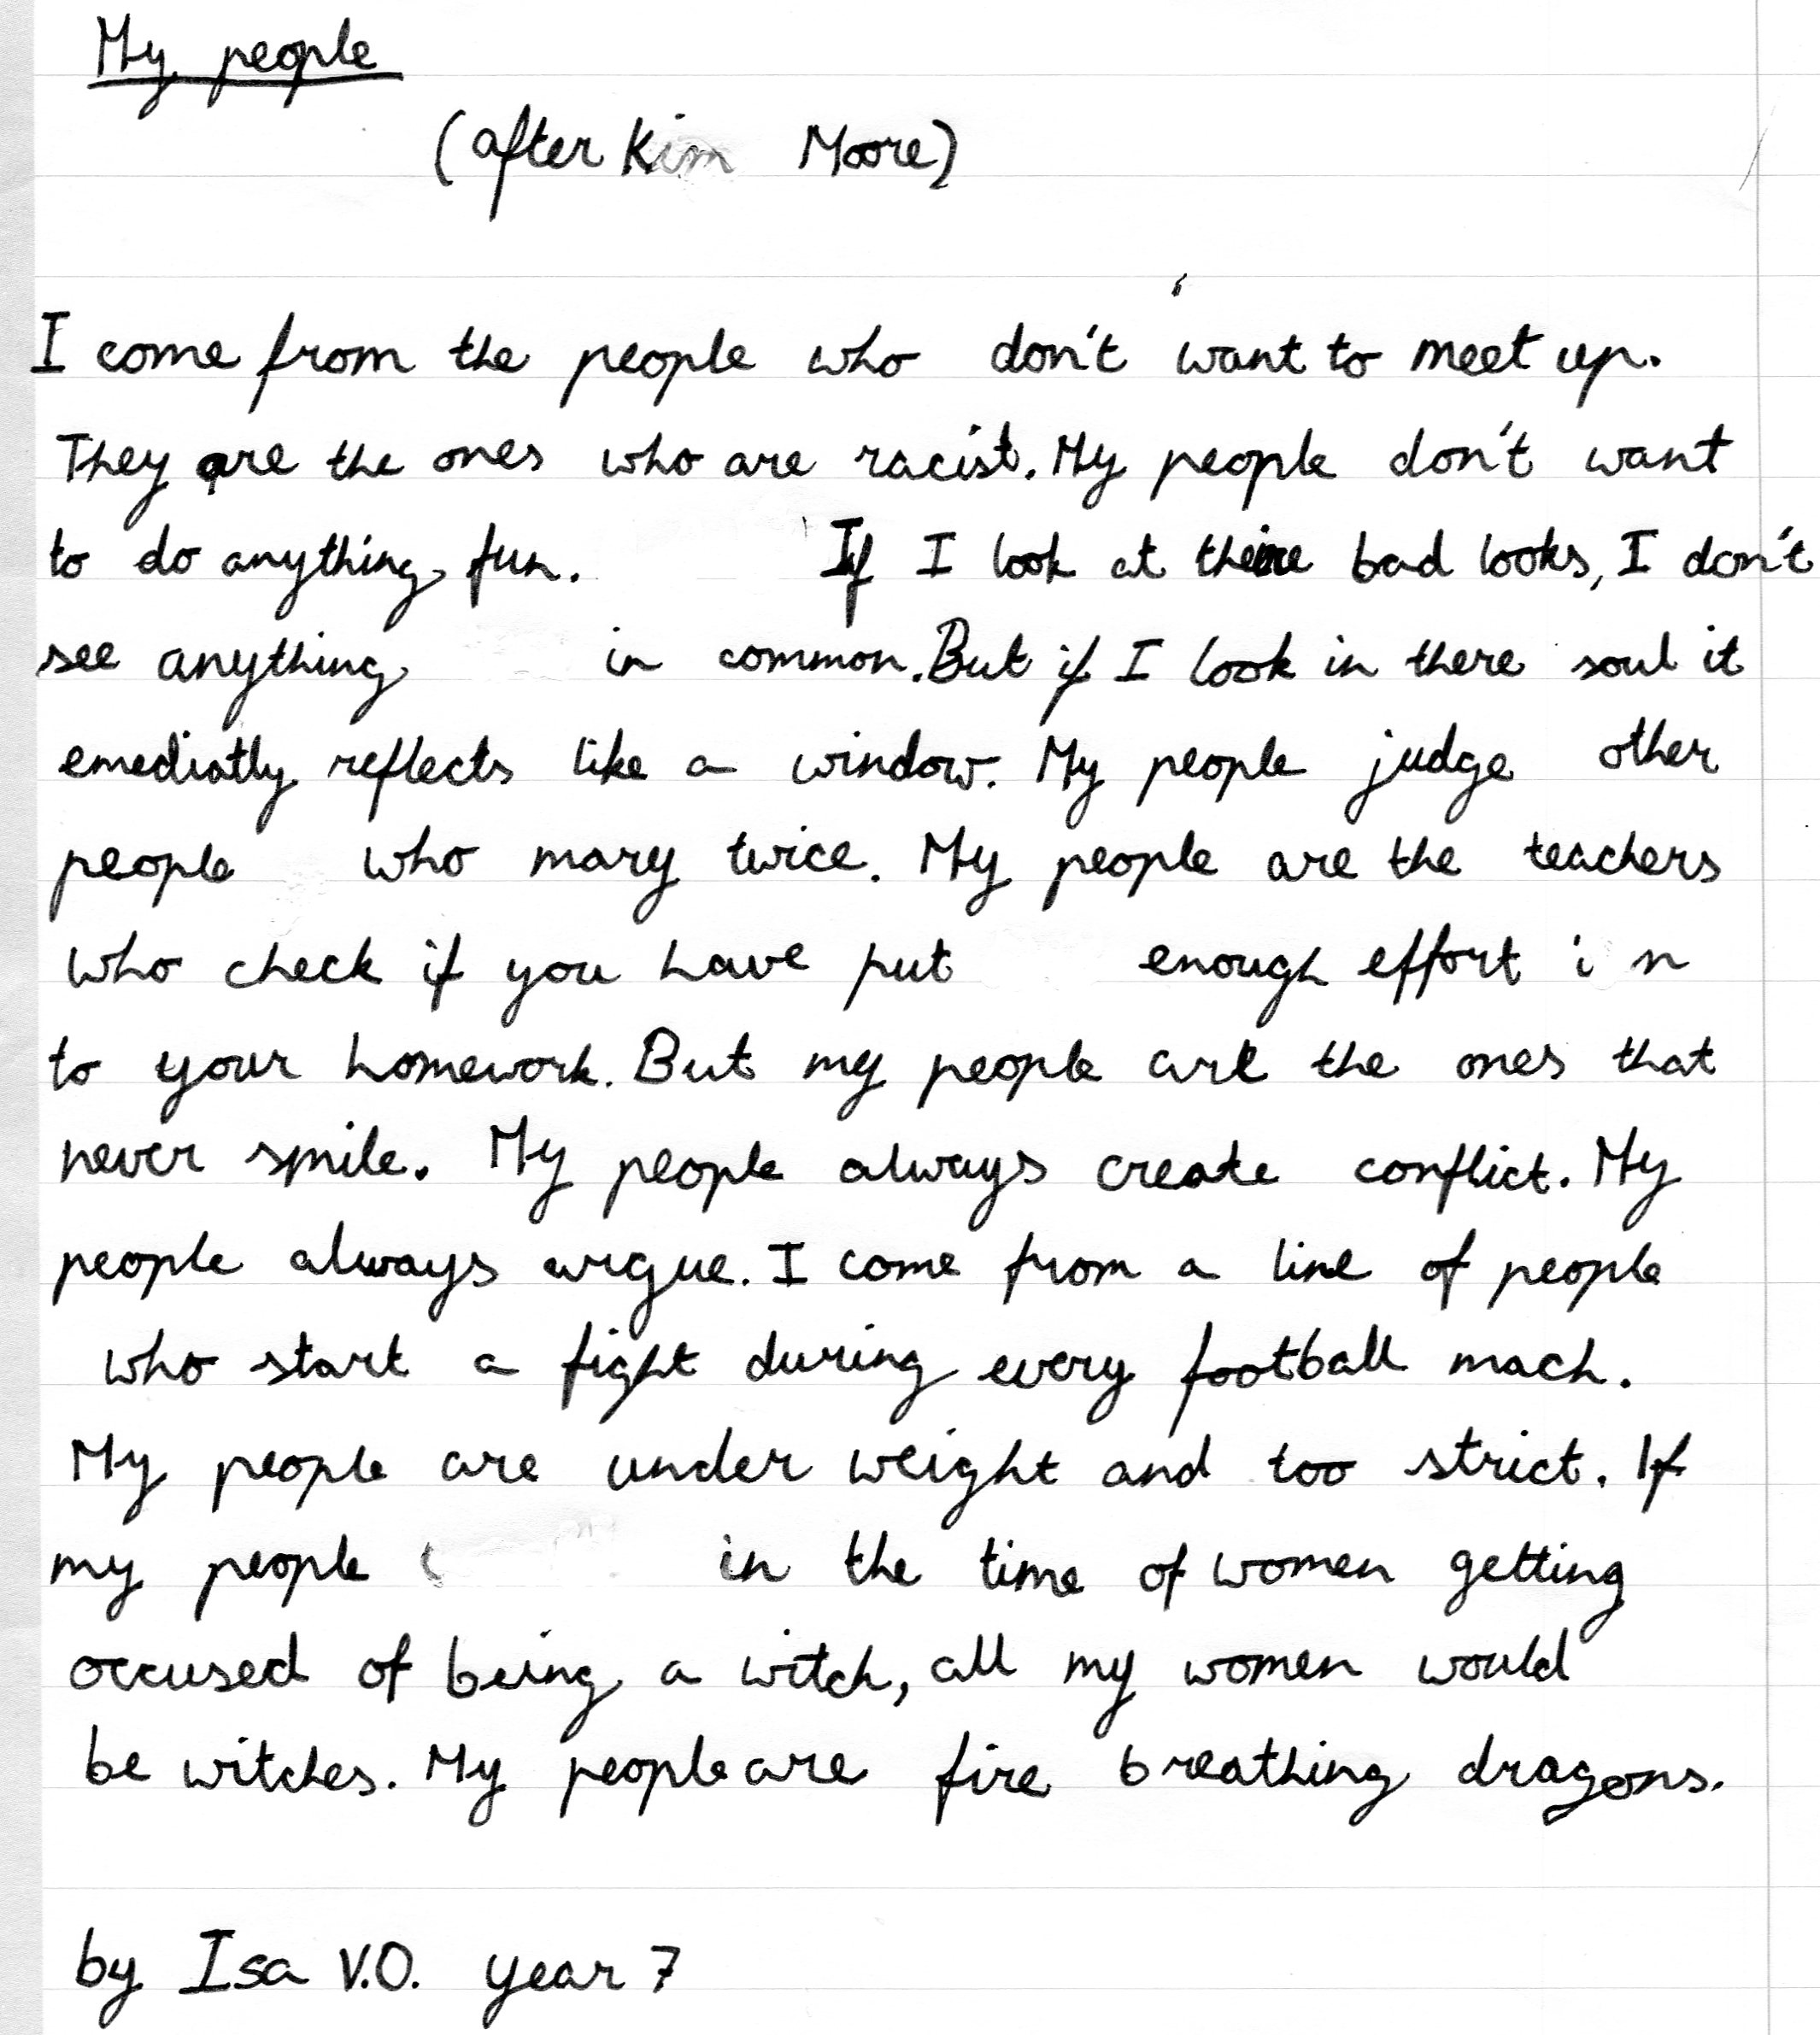 My people
(after Kim Moore)
I come from the people who don't want to meet up.
They are the ones who are racist. My people don't want
to do anything fun. If I look at their bad looks, I don't
see anything in common. But if I look in there soul it
emediatly reflects like a window. My people judge other
people who mary twice. My people are the teachers
who check if you have put enough effort in
to your homework. But my people are the ones that
never smile. My people always create conflict. My
people always argue. I come from a line of people
who start a fight during every football mach.
My people are under weight and too strict. If
my people in the time of women getting
accused of being a witch, all my women would
be witches. My people are fire breathing dragons.
by Isa V.O. year 7